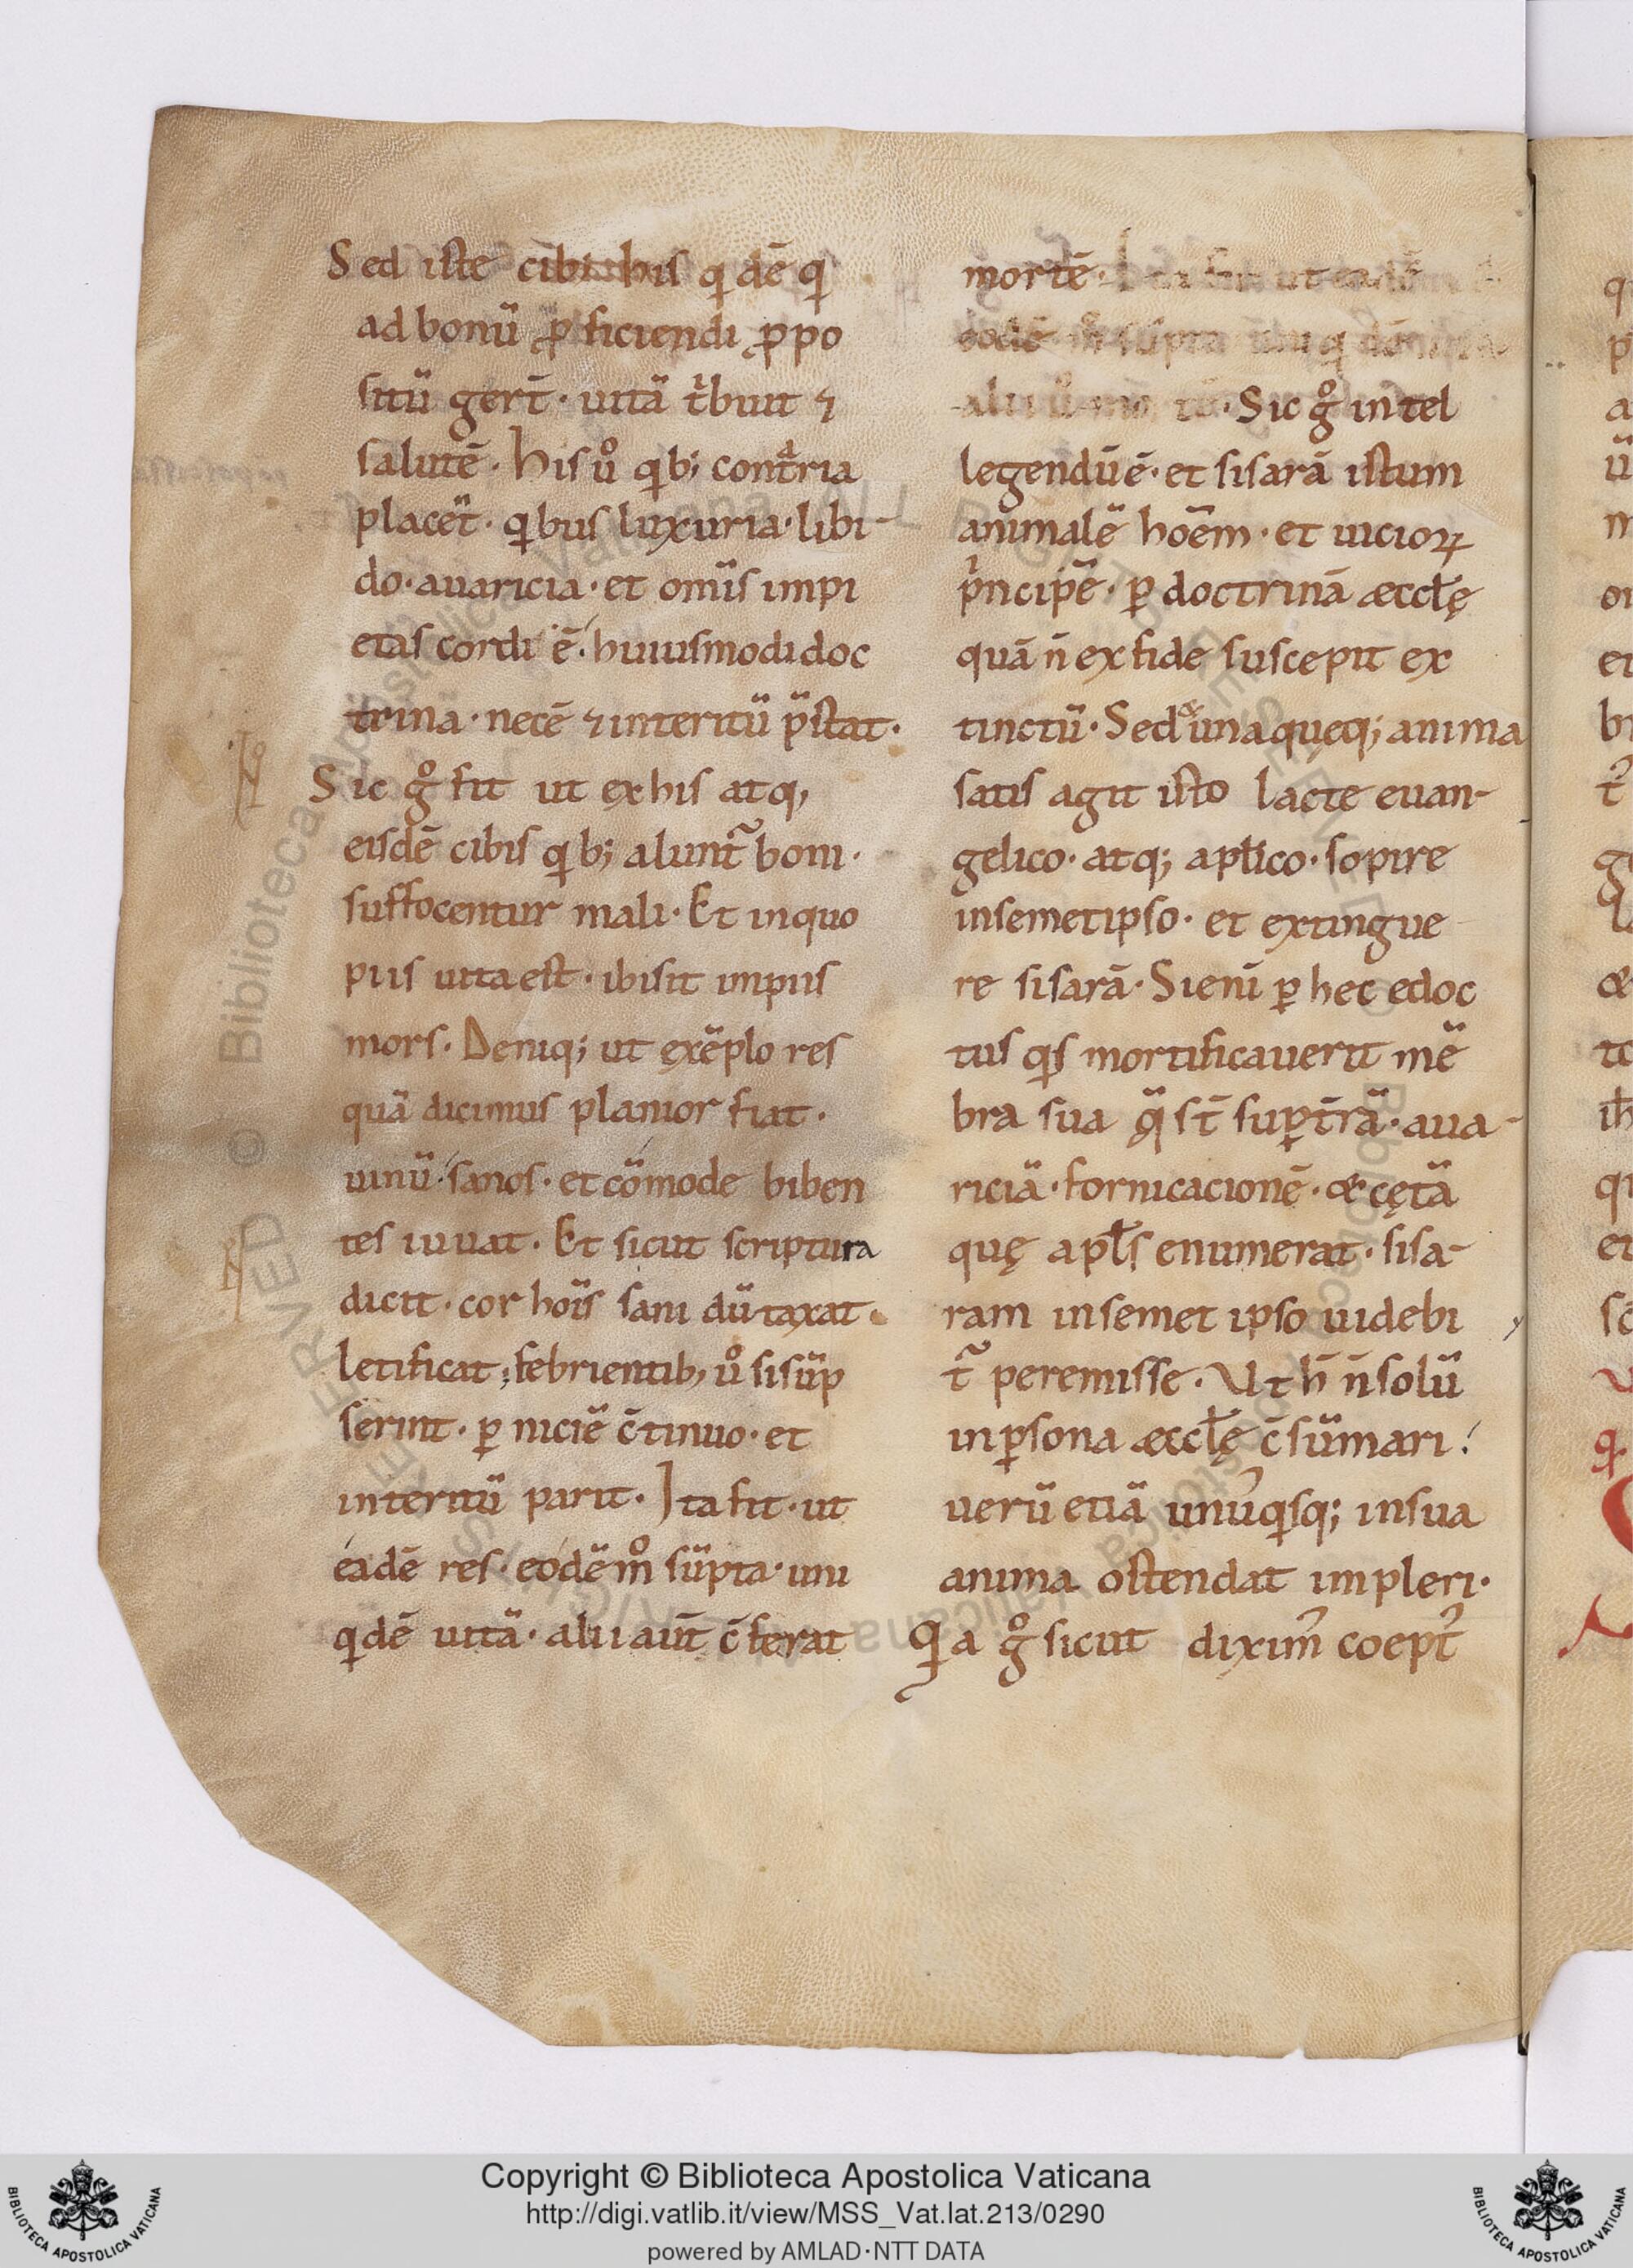 Sed iste cibus his qdē q
ad bonū ꝓficiendi ꝓpo
sitū gerṫ · uitā tͥbuit ⁊
salutē · His uͦ qb; contͣria
placēt · qbus luxuria · libi-
do · auaricia · et om̄is impi
etas cordi ē · huiusmodi doc
trina · necē ⁊ interitū p̄stat ·
Sic gͦ fit ut ex his atq;
eisdē cibis qb; alunt᷑ boni ·
suffocentur mali · Et in quo
piis uita est · ibi sit impiis
mors · Deniq; ut exēplo res
quā dicimus planior fiat ·
uinū sanos · et cōmode biben
tes iuuat · Et sicut scriptura
dicit · cor hoīs sani dūtaxat ·
letificat ; febrientib; uͦ si sūp
serint · ꝑniciē c̄tinuo · et
interitū parit · Ita fit · ut
eadē res · eodē mͦ sūpta · uni
qdē uitā · alii aūt c̄ferat
mortē ·
Sic gͦ intel
legendū ē · et sisarā istum
animalē hoēm · et uicioꝝ
pͥncipē · ꝑ doctrinā æccl̄ę
quā n̄ ex fide suscepit ex
tinctū · Sed & unaquęq; anima
satis agit isto lacte euan-
gelico · atq; apl̄ico · sopire
in semetipso · et extingue
re sisarā · Si enī ꝑ hec edoc
tus qͥs mortificauerit mē
bra sua q̄ st̄ sup t̄rā · aua-
riciā · fornicacionē · & cętā
quę apl̄s enumerat · sisa-
ram in semet ipso uidebi
t᷑ peremisse · Ut h̄ n̄ solū
in ꝑsona æccl̄ę c̄sūmari :
uerū etiā unuqͥsq; in sua
anima ostendat impleri ·
Qa gͦ sicut diximꝰ coeptꝰ
Copyright © Biblioteca Apostolica Vaticana
http://digi.vatlib.it/view/MSS_Vat.lat.213/0290
powered by AMLAD·NTT DATA